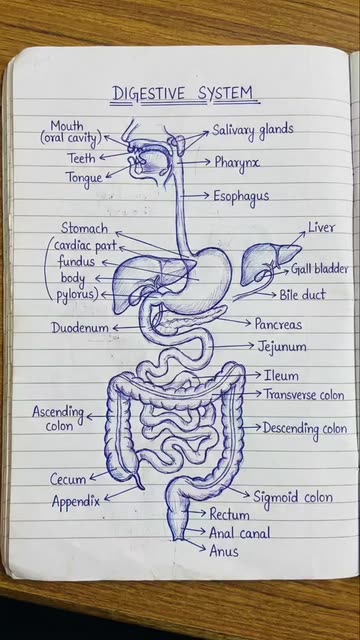 DIGESTIVE SYSTEM
Mouth
(oral cavity)
Teeth
Tongue
Salivary glands
Pharynx
Esophagus
Stomach
(cardiac part
fundus
body
pylorus)
Liver
Gall bladder
Bile duct
Duodenum
Pancreas
Jejunum
Ileum
Transverse colon
Ascending
colon
Descending colon
Cecum
Appendix
Sigmoid colon
Rectum
Anal canal
Anus